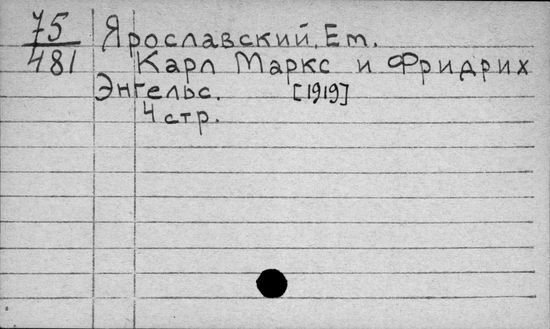 75
481
Ярославский, Ем.
Карл Маркс и Фридрих
Энгельс. [1919]
4 стр.